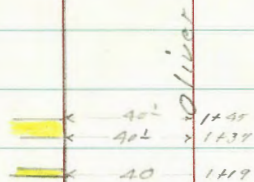 Oliver
40⅟ 1+45
40⅟ 1+37
40 1+19